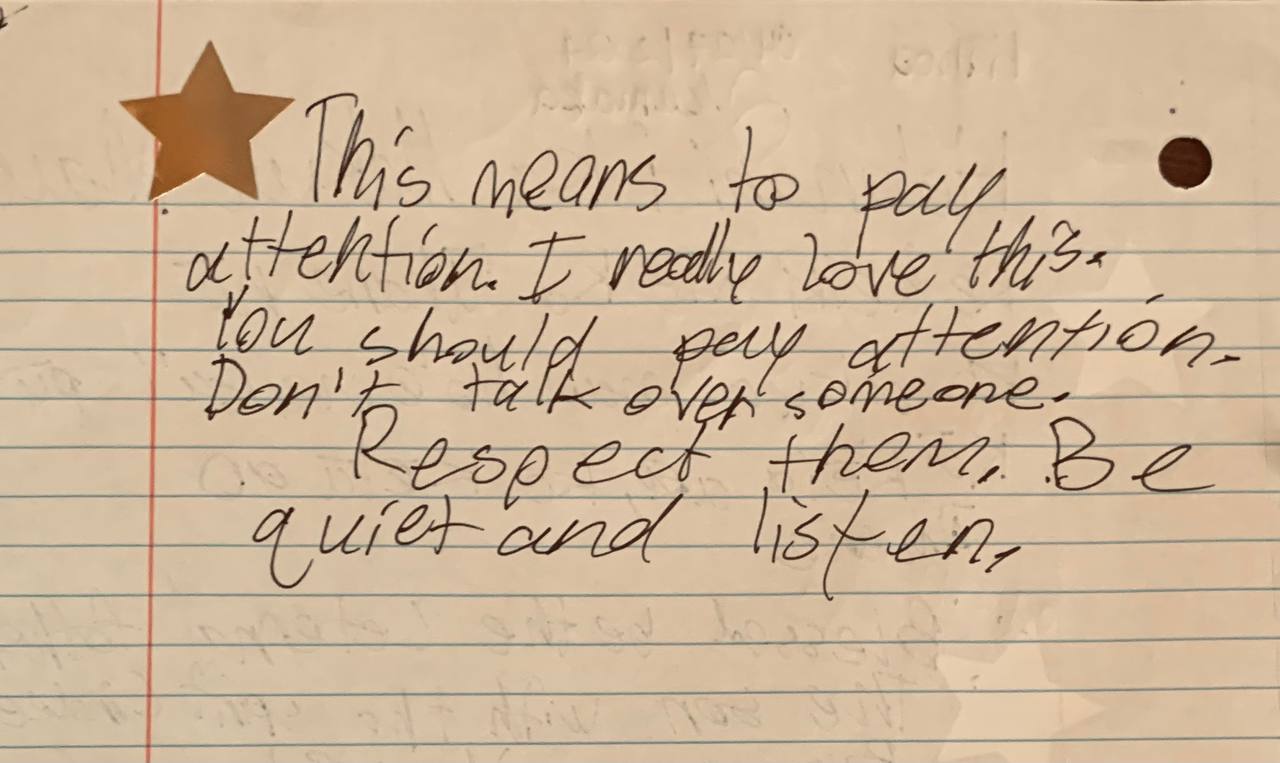 This means to pay
attention. I really love this.
You should pay attention.
Don't talk over someone.
Respect them. Be
quiet and listen.